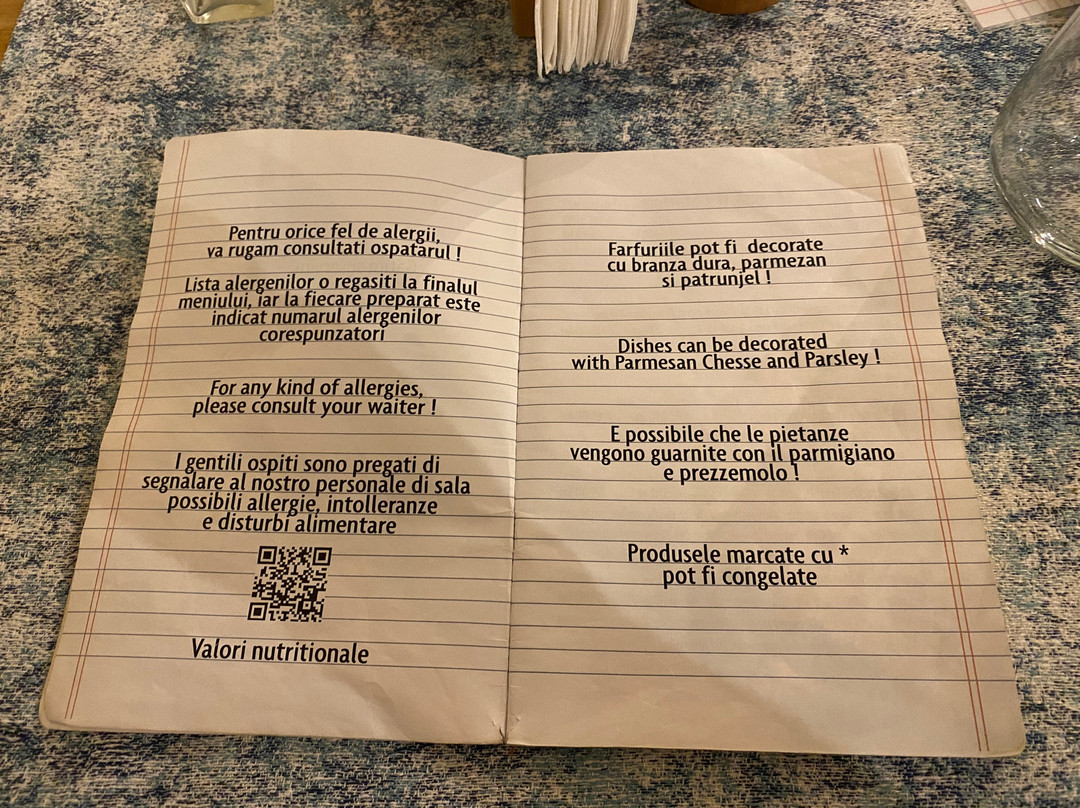 Pentru orice fel de alergii,
va rugam consultati ospatarul !
Lista alergenilor o regasiti la finalul
meniului, iar la fiecare preparat este
indicat numarul alergenilor
corespunzatori
For any kind of allergies,
please consult your waiter !
I gentili ospiti sono pregati di
segnalare al nostro personale di sala
possibili allergie, intolleranze
e disturbi alimentare
Valori nutritionale
Farfuriile pot fi decorate
cu branza dura, parmezan
si patrunjel !
Dishes can be decorated
with Parmesan Chesse and Parsley !
E possibile che le pietanze
vengono guarnite con il parmigiano
e prezzemolo !
Produsele marcate cu *
pot fi congelate